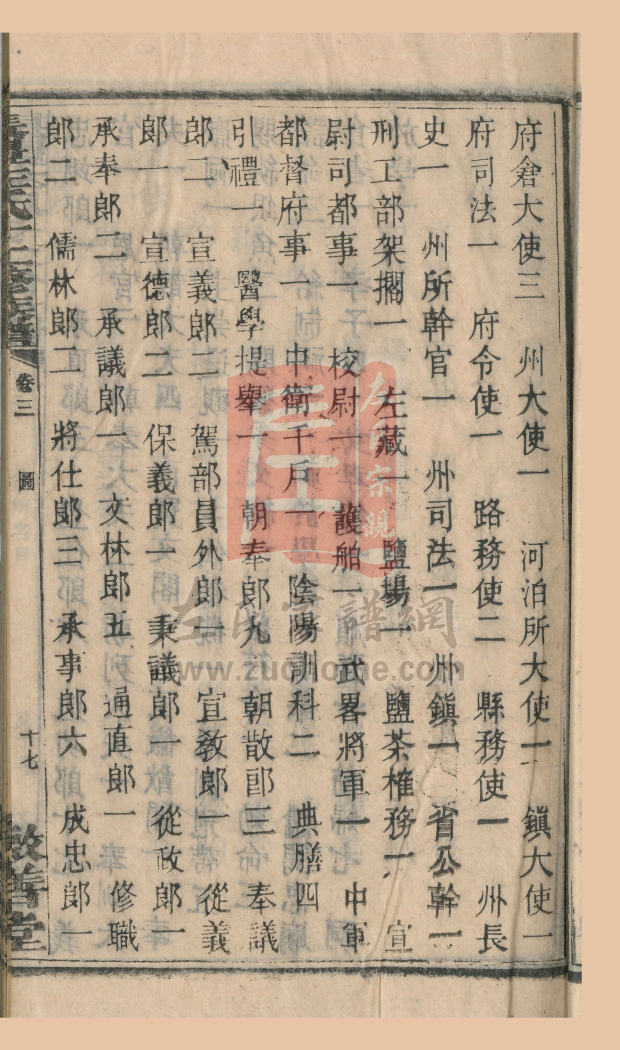 府倉大使三　州大使一　河泊所大使一　鎮大使一
府司法一　府令使一　路務使二　縣務使一　州長
史一　州所幹官一　州司法一　州鎮一　省公幹一
刑工部架擱一　左藏一　鹽場一　鹽茶榷務一　宣
尉司都事一　校尉一　護舶一　武畧將軍一　中軍
都督府事一　中衛千戶一　陰陽訓科二　典膳四
引禮一　醫學提舉一　朝奉郎九　朝散郎三　奉議
郎二　宣義郎二　駕部員外郎一　宣教郎一　從義
郎一　宣德郎二　保義郎一　秉議郎一　從政郎一
承奉郎二　承議郎一　文林郎五　通直郎一　修職
郎二　儒林郎二　將仕郎三　承事郎六　成忠郎一
卷三　圖　十七　敬善堂
左氏宗親
www.zuohome.com